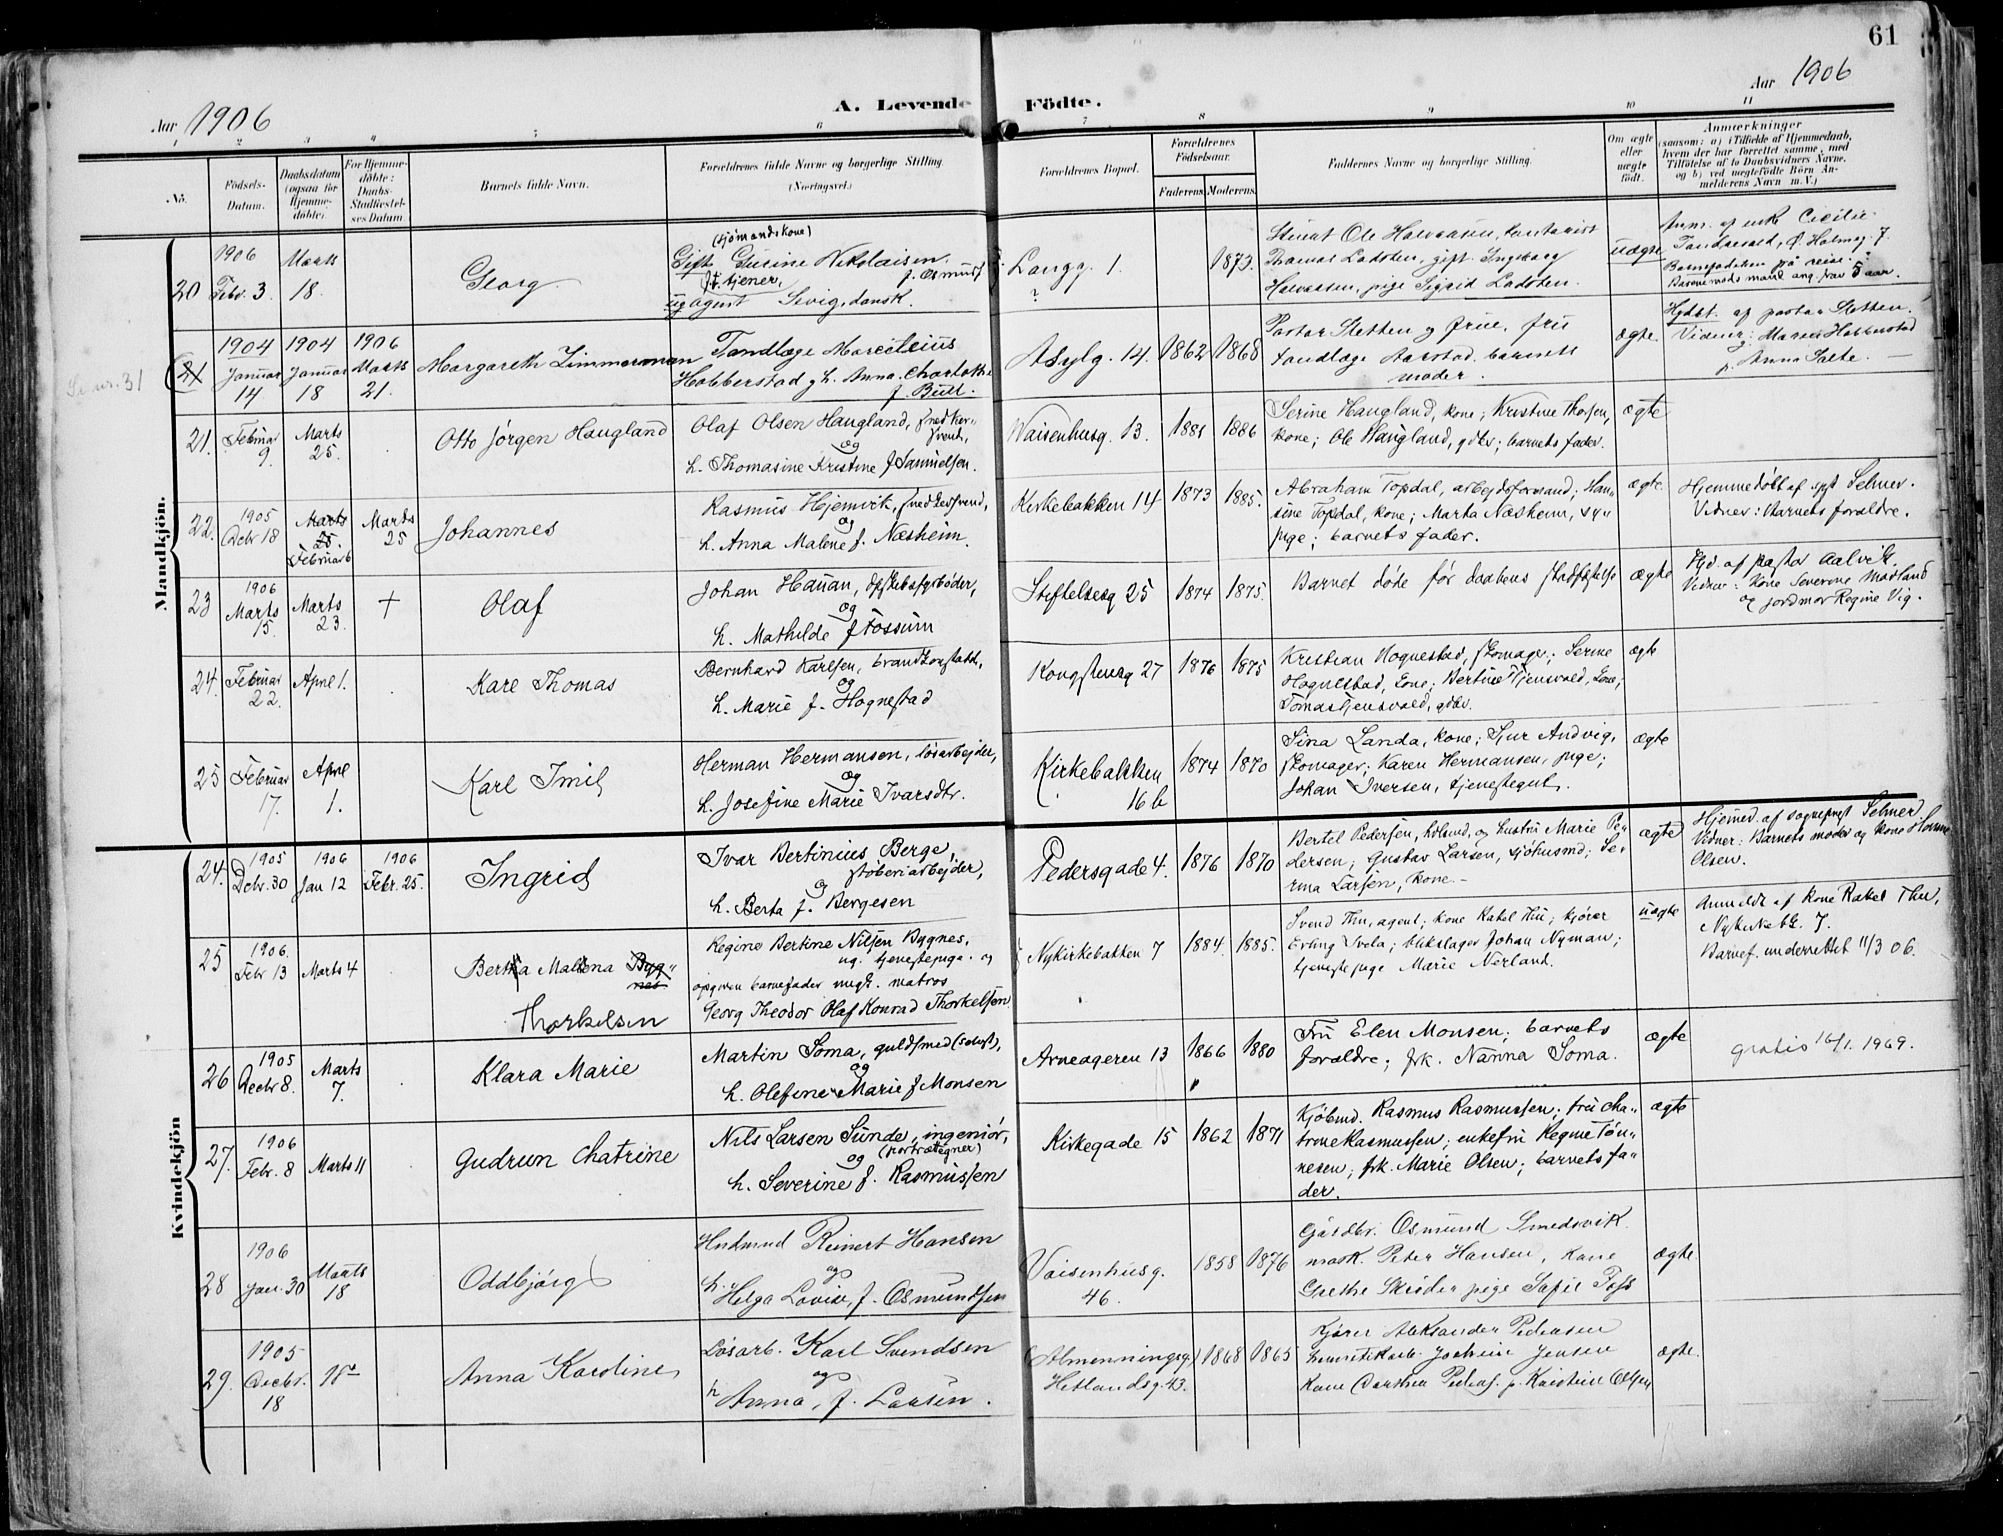 61
Aar 1906
A. Levende Födte.
Aar 1906
1 2 3 4 5 6 7 8 9 10 11
No.
Födsels-Datum.
Daabsdatum (ogsaa for Hjemmedöbte).
For Hjemmedöbte: Daabs-Stadfæstelses Datum
Barnets fulde Navn.
Forældrenes fulde Navne og borgerlige Stilling. (Næringsvei.)
Forældrenes Bopæl.
Forældrenes Födselsaar.
Faderens. Moderens.
Faddernes Navne og borgerlige Stilling.
Om ægte eller uægte födt.
Anmærkninger
(saasom: a) i Tilfælde af Hjemmedaab, hvem der har forrettet samme, med Tilföielse af to Daabsvidners Navne, og b) ved uægtefödte Börn Anmelderens Navn m. V.)
Mandkjön.
20
1906
Febr. 3
Marts
18.
Georg
(sjømandskone)
Gift Gurine Nikolaisen
f. Osmun
tjener,
ug agent Sivig, dansk.
Langg. 1.
?
1873.
Ole Halvorsen, kontorist
Thomas Ladsten, gift Ingeborg
Halvorsen, pige Sigrid Ladsten.
uægte
Anm. af enke Cicilie
Ø. Holmeg. 7.
Barnefaderen på reise.
5 aar.
21
1904
Januar
14
1904
Januar
18
1906
Marts
21.
Margareth Zimmerman
Tandlæge Marcelius
Hobberstad g h. Anna Charlotte
f. Bull.
Asylg. 14.
1862 1868
Pastor Sletten og frue, fru
tandlæge Aarstad. barnets
moder.
ægte.
Hjdbt. af pastor Sletten.
Vidner: Marie Hobberstad
p. Anna Salte.
21.
Februar
9.
Marts
25.
Otto Jørgen Haugland
Olaf Olsen Haugland, snedker-
svend,
og
h. Thomasine Kristine f Samuelsen.
Waisenhusg. 13.
1881 1886
Serine Haugland, kone; Kristine Thorsen,
kone; Ole Haugland, gdbr; barnets fader.
ægte
22.
1905
Decbr 18
Marts
25.
Februar 6
Marts
25
Johannes
Rasmus Hjemvik, snedkersvend,
og
h. Anna Malene f. Næsheim.
Kirkebakken 14
1873 1885.
Abraham Topdal, arbejdsformand; Han-
sine Topdal, kone; Marta Næsheim, sy-
pige; barnets fader.
ægte.
Hjemmedøbt af spt Selmer.
Vidner: Barnets forældre.
23
1906
Marts
15.
Marts
23.
+
Olaf
Johan Hauan, dpskibsfyrbøder,
og
h. Mathilde f Fossum
Stiftelsesg 25
1874 1875.
Barnet døde før daabens stadfæstelse
ægte
Hjd. af pastor Aalvik.
Vidner: kone Severine Madland
og jordmor Regine Vig.
24.
Februar
22.
April 1.
Karl Thomas
Bernhard Karlsen, brandkonstabl,
og
h. Marie f. Hognestad
Kongstensg 27
1876 1875
Kristian Hognestad, skomager; Serine
Hognestad, kone; Bertine Tjensvold, kone;
Tomas Tjensvold, gdbr.
ægte
25
Februar
17.
April
1.
Karl Emil
Herman Hermansen, løsarbejder,
og
h. Josefine Marie Ivarsdtr.
Kirkebakken
16 b
1874 1870
Sina Landa, kone; Sjur Andvig,
skomager; Karen Hermansen, pige;
Johan Iversen, tjenestegut.
ægte
Kvindekjön
24.
1905
Dcbr. 30
1906
Jan 12
1906
Febr. 25.
Ingrid
Ivar Bertinius Berge,
støberiarbejder,
og
h. Berta f. Bergesen
Pedersgade 4.
1876 1870
Bertel Pedersen, hdlsmd, og hustru Marie Pe-
dersen; Gustav Larsen, sjøhusmd; Se-
rina Larsen, kone.
ægte
Hjemed. af sogneprest Selmer
Vidner: Barnets moder og kone Hanna
Olsen.
25
1906.
Febr 13
Marts 4
Berta Malena Byg-
nes
Thorkelsen
Regine Bertine Nilsen Bygnes,
ug. tjenestepige. og
opgiven barnefader ungk. matros
Georg Theodor Olaf Konrad Thorkelsen
Nykirkebakken 7
1884. 1885.
Svend Thu, agent; kone Rakel Thu; kjører
Erling Svela; blikslager Johan Nyman;
tjenestepige Marie Nerland.
uægte
Anmeldt af kone Rakel Thu,
Nykirkebk. 7.
Barnef. underrettet 11/3 06.
26
1905
Decbr 8.
Marts
7.
Klara Marie
Martin Soma, guldsmed (selvst),
og
h. Olefine Marie f Monsen
Arneageren 13
1866 1880
Fru Elen Monsen; barnets
forældre; frk. Nanna Soma.
ægte
gratis 16/1. 1969.
27.
1906
Febr. 8
Marts 11
Gudrun Chatrine
Nils Larsen Sunde, ingeniør,
(portrætegner)
og
h. Severine f. Rasmussen
Kirkegade 15
1862 1871
Kjøbmd. Rasmus Rasmussen; fru Cha-
trine Rasmussen; enkefru Regine Tøn-
nesen; frk. Marie Olsen; barnets fa-
der.
ægte
28
1906
Jan. 30
Marts
18
Oddbjørg
Reinert Hansen
og
h. Helga Lovise, f. Osmundsen
Vaisenhusg.
46.
1858 1876
Gårdbr. Osmund Smedsvik
mask. Peter Hansen, kone
Grethe Skrøder pige Sofie
ægte
29.
1905
Decbr.
18
18de
Anna Karoline
Løsarb. Karl Svendsen
og
h Anna, f. Larsen.
(Almenningsg.)
Hetlandsg. 43.
1868 1865
Kjører Aleksander Pedersen
Jensen
Kone Pedersen p. Kristine Olsen
ægte.